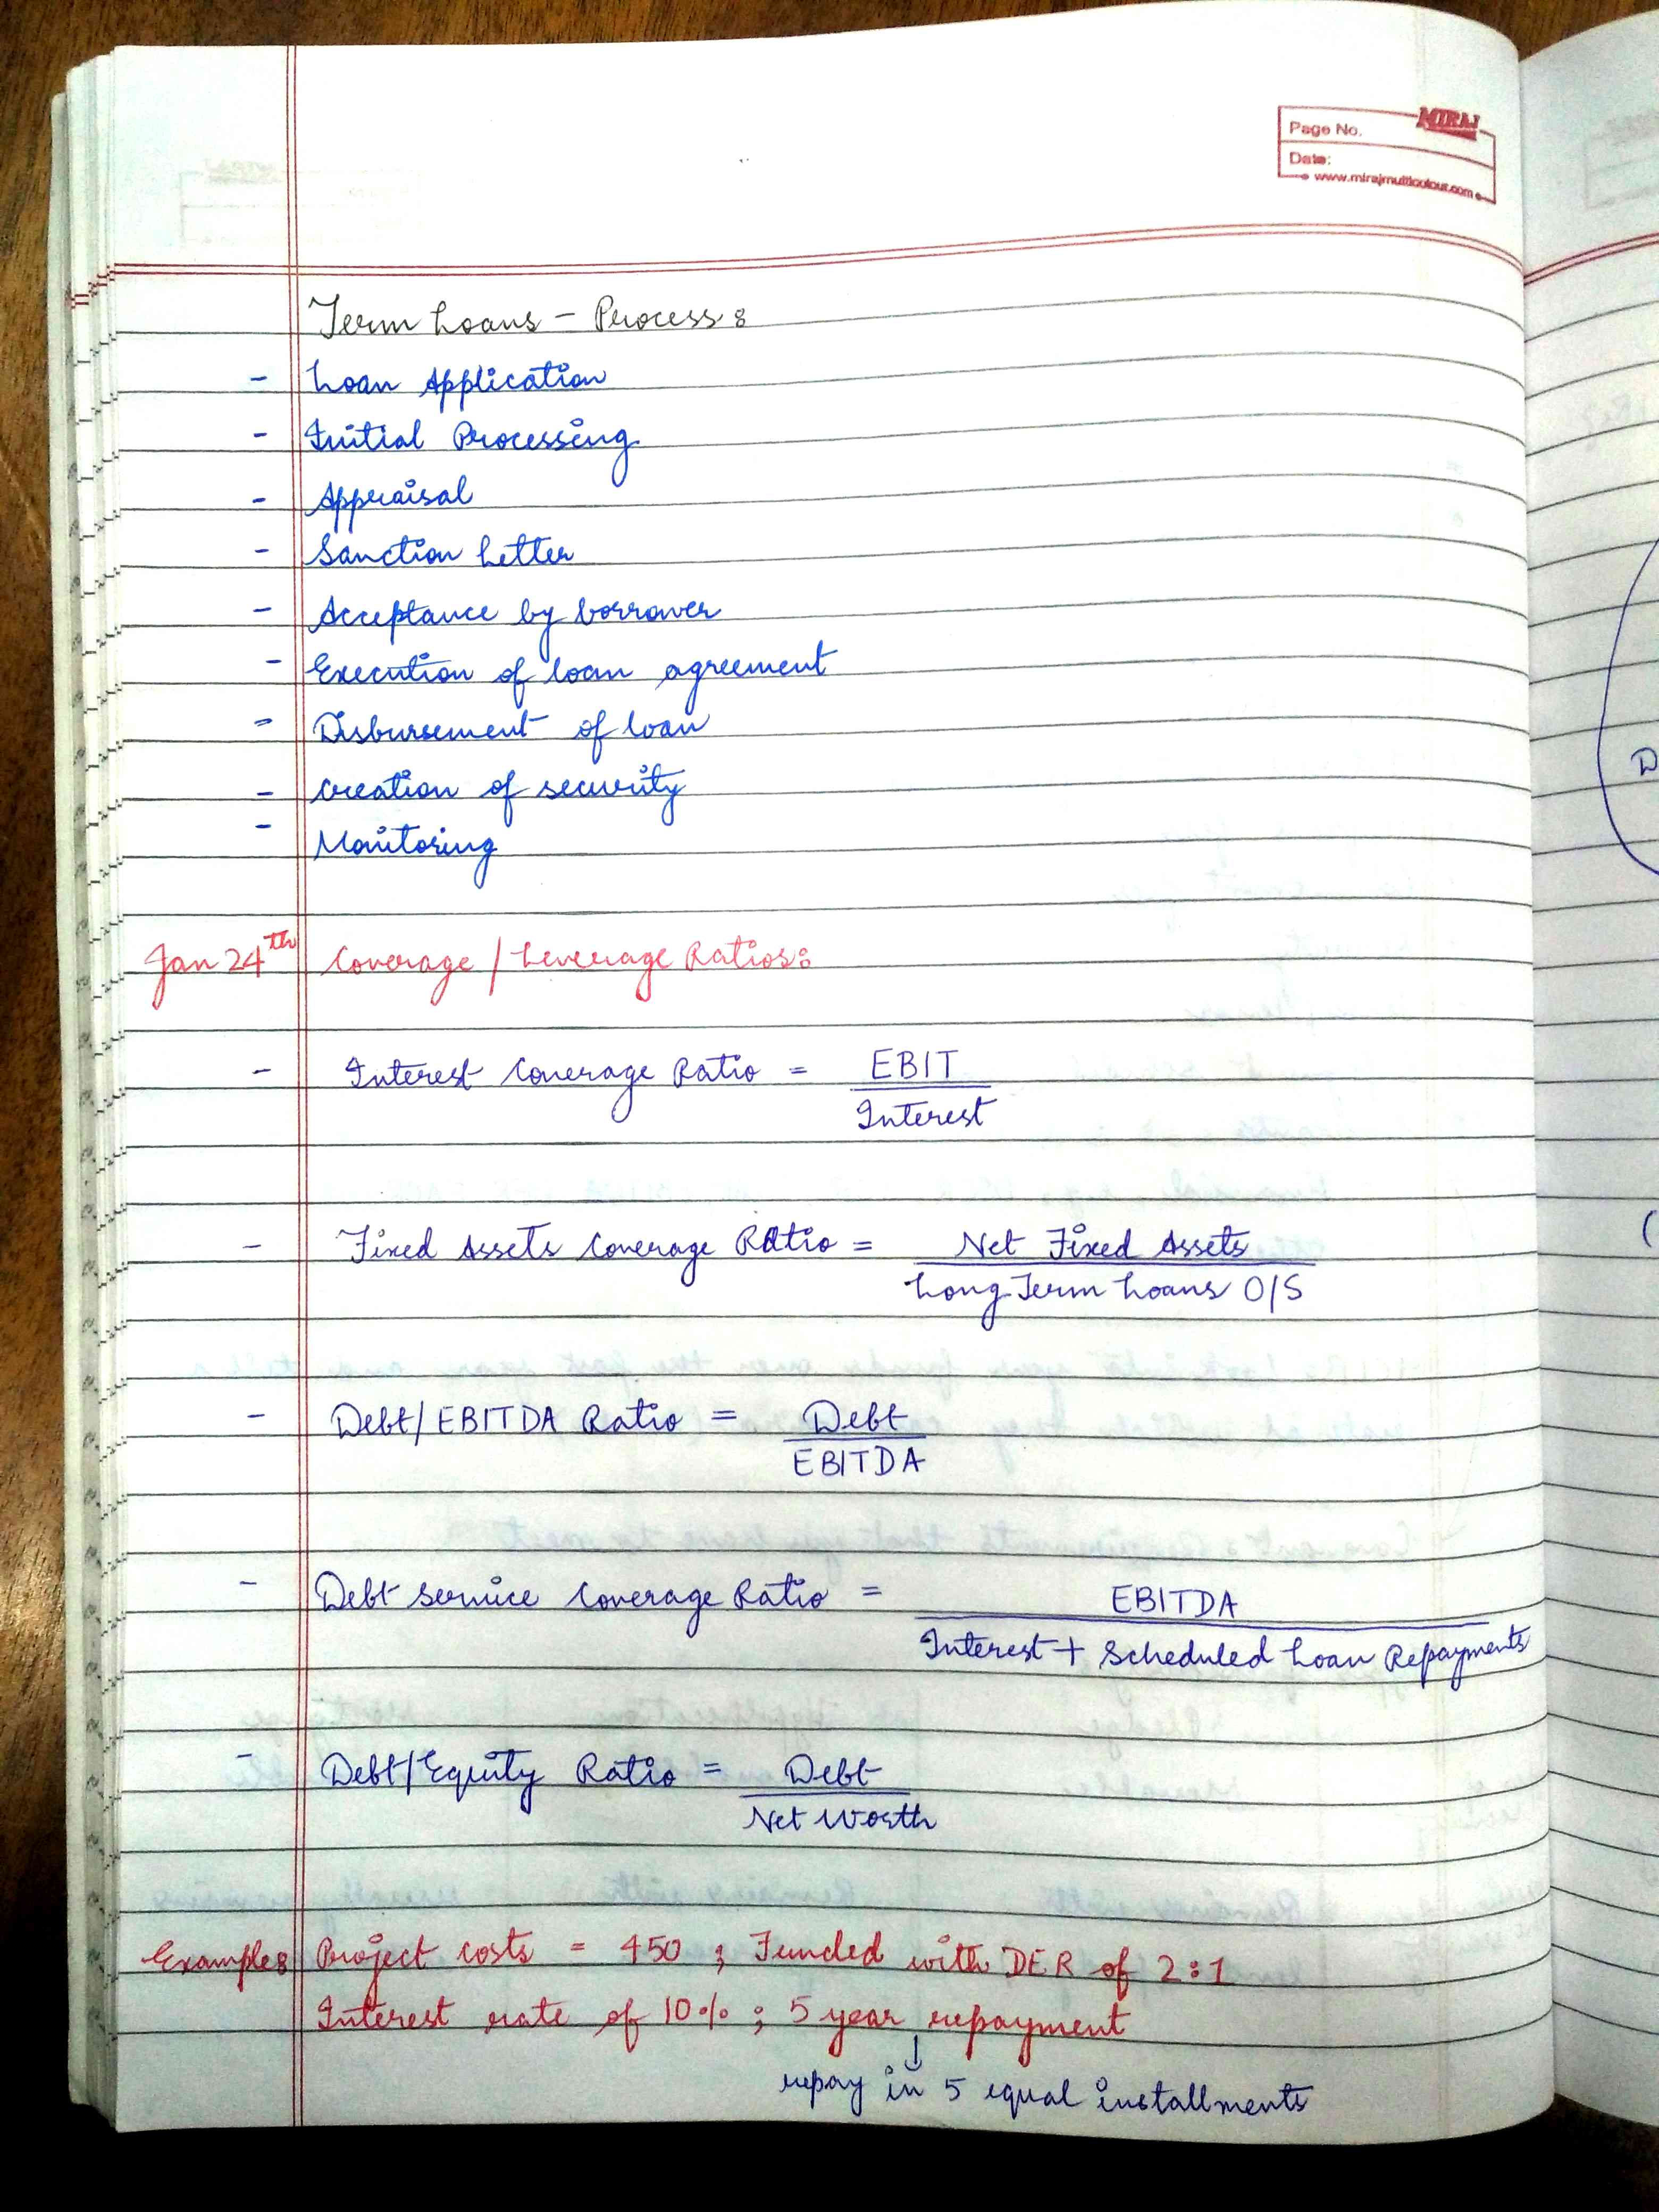 MIRAJ
Page No.
Date:
www.mirajmulticolour.com
Term Loans - Process:
- Loan Application
- Initial Processing
- Appraisal
- Sanction Letter
- Acceptance by borrower
- Execution of loan agreement
- Disbursement of loan
- Creation of security
- Monitoring
Jan 24th Coverage / Leverage Ratios:
- Interest Coverage Ratio = EBIT
Interest
- Fixed Assets Coverage Ratio = Net Fixed Assets
Long Term Loans O/S
- Debt/EBITDA Ratio = Debt
EBITDA
- Debt Service Coverage Ratio = EBITDA
Interest + Scheduled Loan Repayments
- Debt/Equity Ratio = Debt
Net Worth
Example: Project costs = 450 ; Funded with DER of 2:1
Interest rate of 10% ; 5 year repayment
↓
repay in 5 equal installments